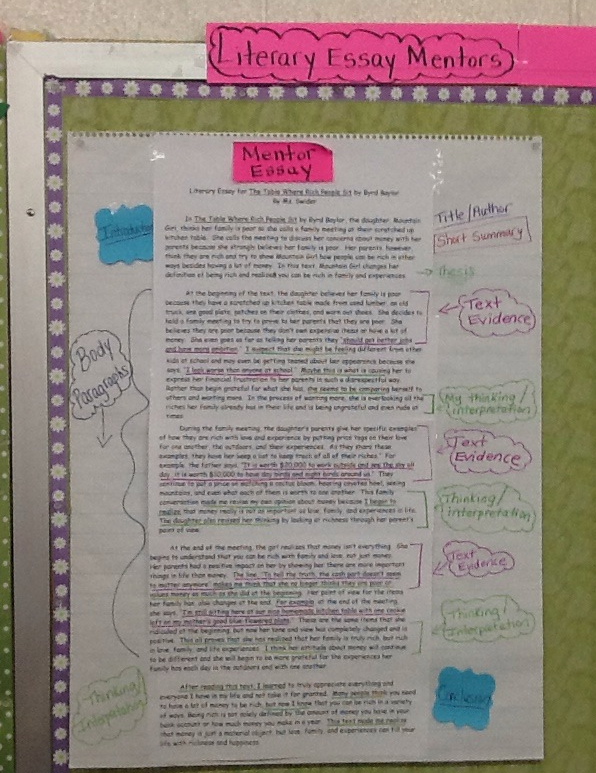 Literary Essay Mentors
Mentor
Essay
Literary Essay for The Table Where Rich People Sit by Byrd Baylor
By Ms. Swider
Introduction
Title/Author
Short Summary
→ Thesis
In The Table Where Rich People Sit by Byrd Baylor, the daughter, Mountain
Girl, thinks her family is poor so she calls a family meeting at their scratched up
kitchen table. She calls the meeting to discuss her concerns about money with her
parents because she strongly believes her family is poor. Her parents, however,
think they are rich and try to show Mountain Girl how people can be rich in other
ways besides having a lot of money. In this text, Mountain Girl changes her
definition of being rich and realized you can be rich in family and experiences.
Body
Paragraphs
At the beginning of the text, the daughter believes her family is poor
because they have a scratched up kitchen table made from used lumber, an old
truck, one good plate, patches on their clothes, and worn out shoes. She decides to
hold a family meeting to try to prove to her parents that they are poor. She
believes they are poor because they don't own expensive items or have a lot of
money. She even goes as far as telling her parents they "should get better jobs
and have more ambition." I suspect that she might be feeling different from other
kids at school and may even be getting teased about her appearance because she
says, "I look worse than anyone at school." Maybe this is what is causing her to
express her financial frustration to her parents in such a disrespectful way.
Rather than begin grateful for what she has, she seems to be comparing herself to
others and wanting more. In the process of wanting more, she is overlooking all the
riches her family already has in their life and is being ungrateful and even rude at
times.
Text
Evidence
My thinking/
interpretation
During the family meeting, the daughter's parents give her specific examples
of how they are rich with love and experience by putting price tags on their love
for one another, the outdoors, and their experiences. As they share these
examples, they have her keep a list to keep track of all of their riches. For
example, the father says, "It is worth $20,000 to work outside and see the sky all
day, it is worth $10,000 to have day birds and night birds around us." They
continue to put a price on watching a cactus bloom, hearing coyotes howl, seeing
mountains, and even what each of them is worth to one another. This family
conversation made me revise my own opinion about money because I began to
realize that money really is not as important as love, family, and experiences in life.
The daughter also revised her thinking by looking at richness through her parent's
point of view.
Text
Evidence
Thinking/
interpretation
At the end of the meeting, the girl realizes that money isn't everything. She
begins to understand that you can be rich with family and love, not just money.
Her parents had a positive impact on her by showing her there are more important
things in life than money. The line "To tell the truth, the cash part doesn't seem
to matter anymore" makes me think that she no longer thinks they are poor or
values money as much as she did at the beginning. Her point of view for the items
her family has, also changes at the end. For example at the end of the meeting,
she says, "I'm still sitting here at our nice homemade kitchen table with one cookie
left on my mother's good blue flowered plate." These are the same items that she
ridiculed at the beginning, but now her tone and view has completely changed and is
positive. This all proves that she has realized that her family is truly rich, but rich
in love, family, and life experiences. I think her attitude about money will continue
to be different and she will begin to be more grateful for the experiences her
family has each day in the outdoors and with one another.
Text
Evidence
Thinking/
Interpretation
Thinking/
Interpretation
After reading this text, I learned to truly appreciate everything and
everyone I have in my life and not take it for granted. Many people think you need
to have a lot of money to be rich, but now I know that you can be rich in a variety
of ways. Being rich is not solely defined by the amount of money you have in your
bank account or how much money you make in a year. This text made me realize
that money is just a material object, but love, family, and experiences can fill your
life with richness and happiness.
Conclusion